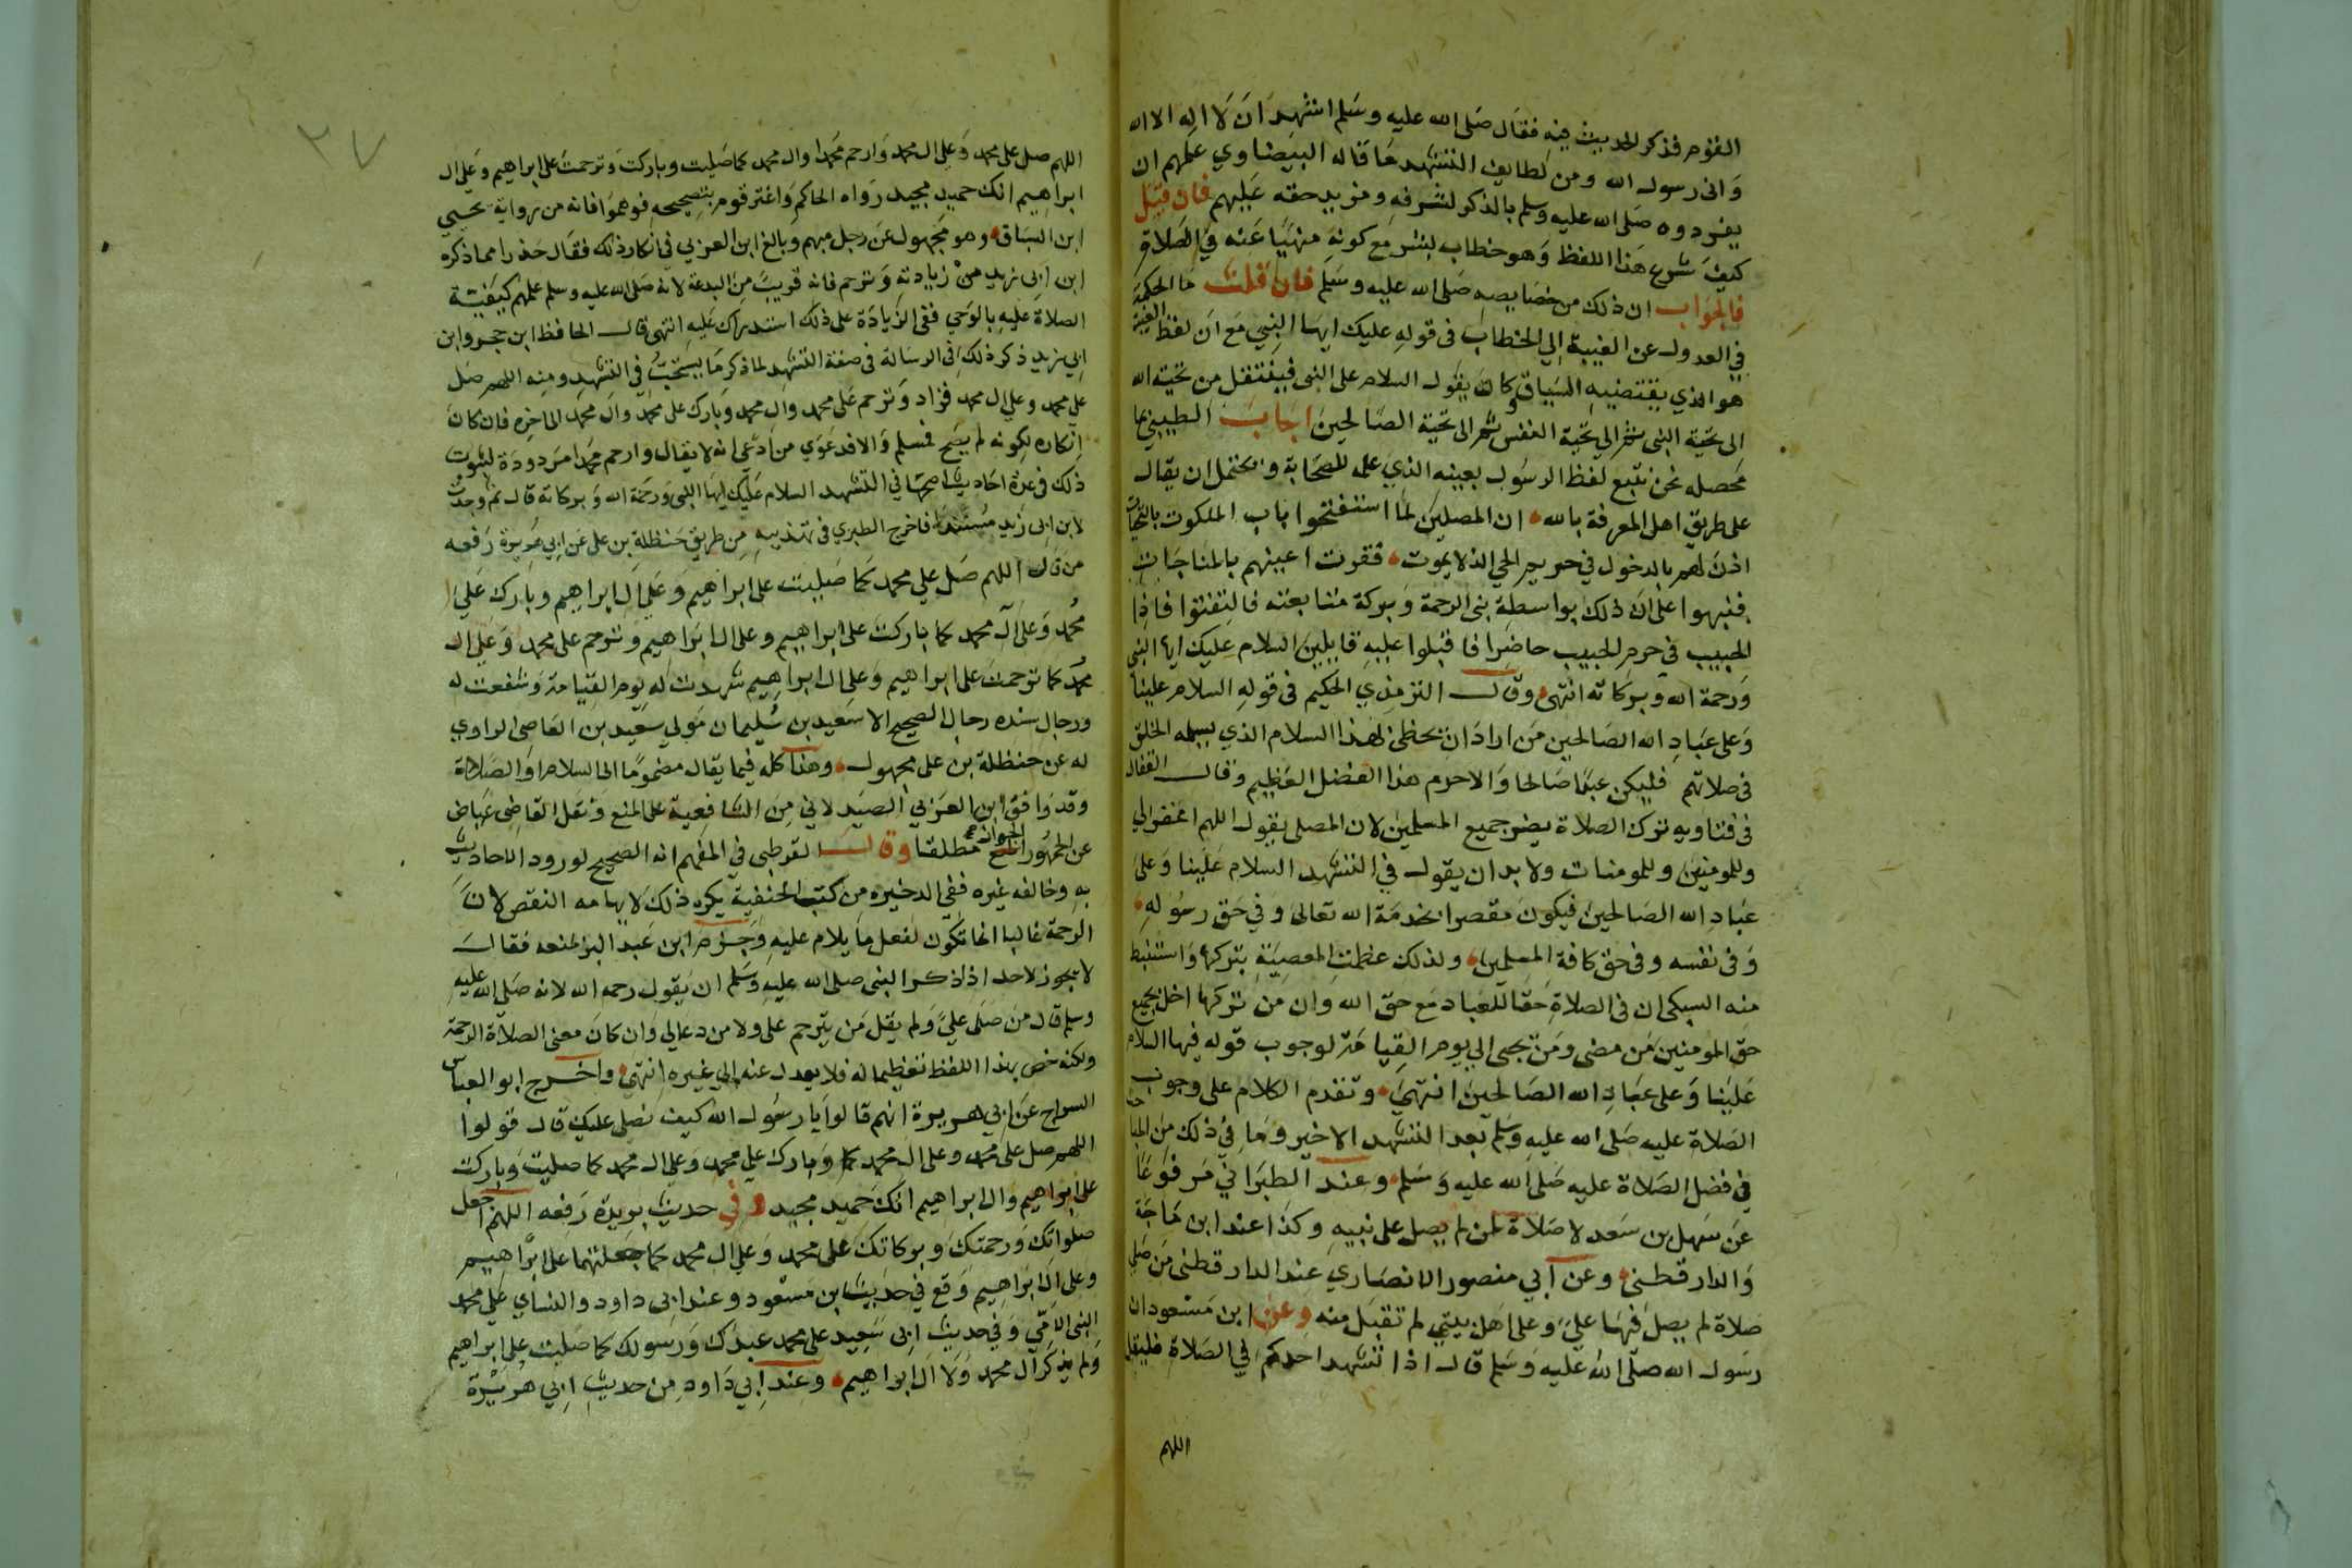 القوم فذكر الحديث فيه فقال صلى الله عليه وسلم اشهد ان لا اله الا الله
وانى رسول الله ومن لطايف التشهد ما قاله البيضاوي علمهم ان
يفردوه صلى الله عليه وسلم بالذكر لشرفه ومزيد حقه عليهم فان قيل
كيف شرع هذا اللفظ وهو خطاب بشر مع كونه منهيا عنه في الصلاة
فالجواب ان ذلك من خصايصه صلى الله عليه وسلم فان قلت ما الحكمة
في العدول عن الغيبة الي الخطاب فى قوله عليك ايها النبي مع ان لفظ الغيبة
هو الذي يقتضيه السياق كان يقول السلام على النبى فينتقل من تحية الله
الى تحية النبى ثم الي تحية النفس ثم الى تحية الصالحين اجاب الطيبي بما
محصله نحن نتبع لفظ الرسول بعينه الذي علمه للصحابة ويحتمل ان يقال
على طريق اهل المعرفة بالله ان المصلين لما استفتحوا باب الملكوت بالتحيات
اذن لهم بالدخول في حريم الحي الذ لا يموت فقرت اعينهم بالمناجات
فنبهوا على ان ذلك بواسطة نبى الرحمة وبركة متابعته فالتفتوا فاذا
الحبيب في حرم الحبيب حاضرا فاقبلوا عليه قايلين السلام عليك ايها النبى
ورحمة الله وبركاته انتهى وقال الترمذي الحكيم فى قوله السلام علينا
وعلى عباد الله الصالحين من اراد ان يحظى بهذا السلام الذي يسلمه الخلق
فى صلاتهم فليكن عبدا صالحا والا حرم هذا الفضل العظيم وقال القفال
فى فتاويه ترك الصلاة يضر جميع المسلمين لان المصلى يقول اللهم اغفر لي
وللمومنين وللمومنات ولا بد ان يقول في التشهد السلام علينا وعلى
عباد الله الصالحين فيكون مقصرا بخدمة الله تعالى وفي حق رسوله
وفى نفسه وفى حق كافة المسلمين ولذلك عظمت المعصية بتركها واستنبط
منه السبكى ان فى الصلاة حقا للعباد مع حق الله وان من تركها اخل بجميع
حق المومنين من مضى ومن يجىء الي يوم القيامة لوجوب قوله فيها السلام
علينا وعلى عباد الله الصالحين انتهى وتقدم الكلام على وجوب
الصلاة عليه صلى الله عليه وسلم بعد التشهد الاخير وما في ذلك من المباحث
في فضل الصلاة عليه صلى الله عليه وسلم وعند الطبراني مرفوعا
عن سهل بن سعد لا صلاة لمن لم يصل على نبيه وكذا عند ابن ماجة
والدارقطنى وعن ابي منصور الانصاري عند الدارقطنى من صلى
صلاة لم يصل فيها علي وعلى اهل بيتي لم تقبل منه وعن ابن مسعود ان
رسول الله صلى الله عليه وسلم قال اذا تشهد احدكم في الصلاة فليقل
اللهم
٢٧
اللهم صل على محمد وعلى ال محمد وارحم محمدا وال محمد كما صليت وباركت وترحمت على ابراهيم وعلى ال
ابراهيم انك حميد مجيد رواه الحاكم واغتر قوم بتصحيحه فوهموا فانه من رواية يحيي
ابن السباق وهو مجهول عن رجل مبهم وبالغ ابن العربي في انكار ذلك فقال حذرا مما ذكره
ابن ابي زيد من زيادته وترحم فانه قريب من البدعة لانه صلى الله عليه وسلم علمهم كيفية
الصلاة عليه بالوحي ففى الزيادة على ذلك استدراك عليه انتهى قال الحافظ ابن حجر وابن
ابي زيد ذكر ذلك فى الرسالة فى صفة التشهد لما ذكر ما يستحب في التشهد ومنه اللهم صل
على محمد وعلى ال محمد فزاد وترحم على محمد وال محمد وبارك على محمد وال محمد الى اخره فان كان
انكاره لكونه لم يصح فمسلم والا فدعوي من ادعى انه لا يقال وارحم محمدا مردودة لثبوت
ذلك فى عدة احاديث اصحها في التشهد السلام عليك ايها النبى ورحمة الله وبركاته قال ثم وجدت
لابن ابى زيد مستندا فاخرج الطبري فى تهذيبه من طريق حنظلة بن على عن ابي هريرة رفعه
من قال اللهم صل علي محمد كما صليت على ابراهيم وعلى ال ابراهيم وبارك على
محمد وعلى آل محمد كما باركت على ابراهيم وعلى ال ابراهيم وترحم على محمد وعلى ال
محمد كما ترحمت على ابراهيم وعلى ال ابراهيم شهدت له يوم القيامة وشفعت له
ورجال سنده رجال الصحيح الا سعيد بن سليمان مولي سعيد بن العاصى الراوي
له عن حنظلة بن على مجهول وهذا كله فيما يقال مضموما الى السلام او الصلاة
وقد وافق ابن العربي الصيدلاني من الشافعية على المنع ونقل القاضى عياض
عن الجمهور الجواز مطلقا وقال القرطبى في المفهم انه الصحيح لورود الاحاديث
به وخالفه غيره ففى الدخيره من كتب الحنفية يكره ذلك لايهامه النقص لان
الرحمة غالبا انما تكون لفعل ما يلام عليه وجزم ابن عبد البر بمنعه فقال
لا يجوز لاحد اذا ذكر النبى صلى الله عليه وسلم ان يقول رحمه الله لانه صلى الله عليه
وسلم قال من صلى علي ولم يقل من يترحم على ولا من دعا لي وان كان معنى الصلاة الرحمة
ولكنه خص بهذا اللفظ تعظيما له فلا يعدل عنه الي غيره انتهى واخرج ابو العباس
السراج عن ابي هريرة انهم قالوا يا رسول الله كيف نصلى عليك قال قولوا
اللهم صل على محمد وعلى ال محمد وبارك على محمد وعلى ال محمد كما صليت وباركت
على ابراهيم وال ابراهيم انك حميد مجيد وفي حديث بريدة رفعه اللهم اجعل
صلواتك ورحمتك وبركاتك على محمد وعلى ال محمد كما جعلتها على ابراهيم
وعلى ال ابراهيم وقع في حديث ابن مسعود وعند ابى داود والنساي على محمد
النبى الامي وفي حديث ابى سعيد على محمد عبدك ورسولك كما صليت على ابراهيم
ولم يذكر آل محمد ولا ال ابراهيم وعند ابي داود من حديث ابي هريرة